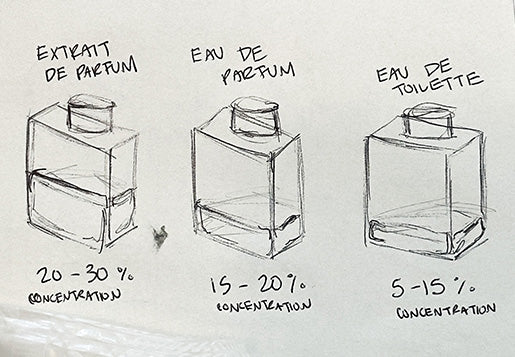 EXTRAIT
DE PARFUM
20-30%
CONCENTRATION
EAU DE
PARFUM
15-20%
CONCENTRATION
EAU DE
TOILETTE
5-15%
CONCENTRATION